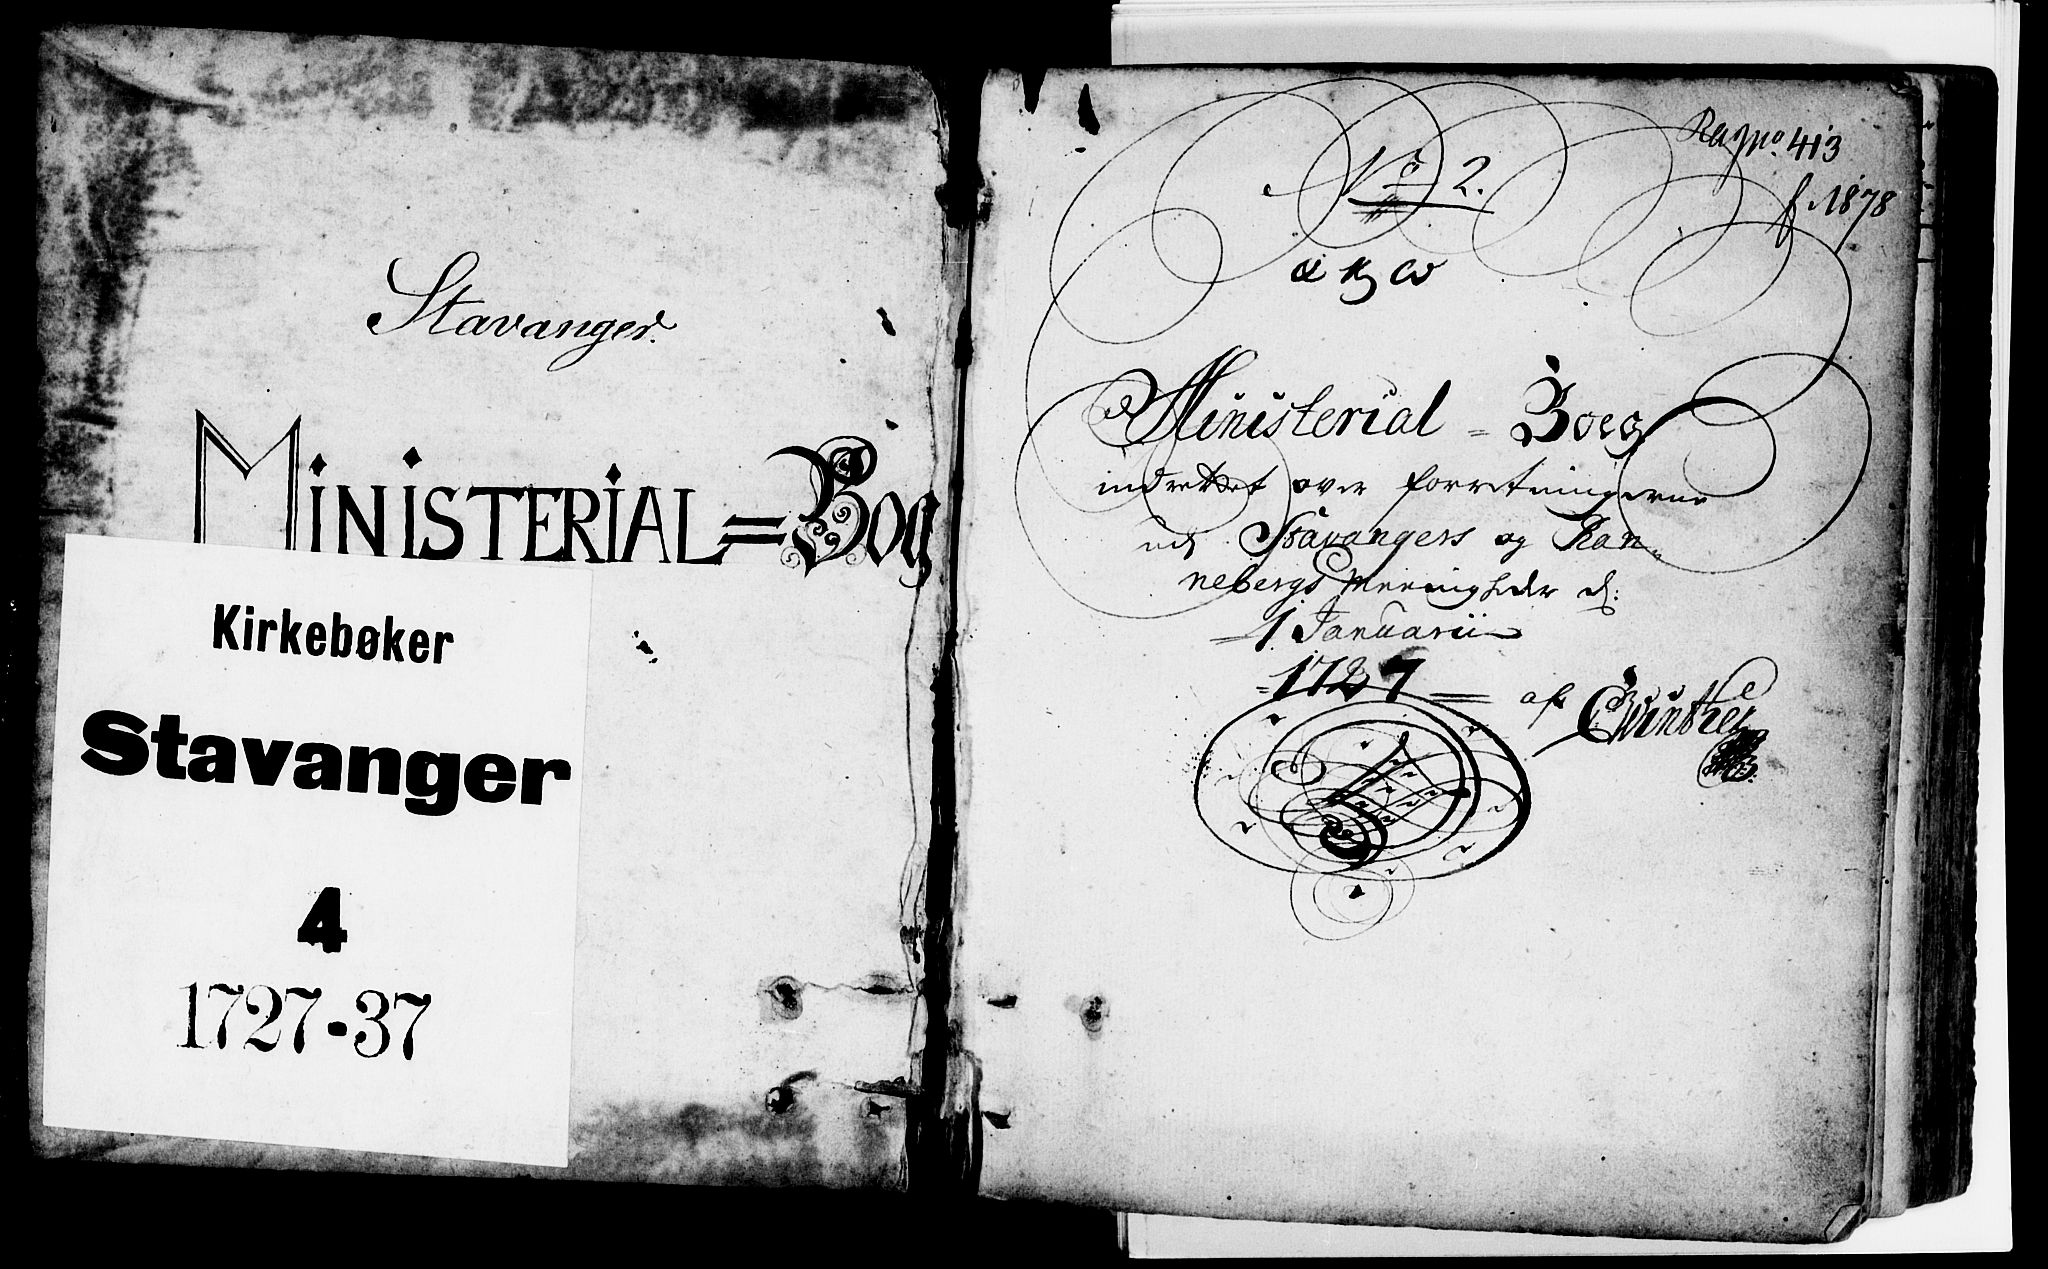 Stavanger.
MINISTERIAL=Bog
Kirkebøker
Stavanger
4
1727-37
No 2.
413
f. 1878
Ministerial = Boeg
indrettet over forretningerne
udi Stavangers og Ran-
nebergs Meenigheder d:
1 Januarii
1727
af CWinther